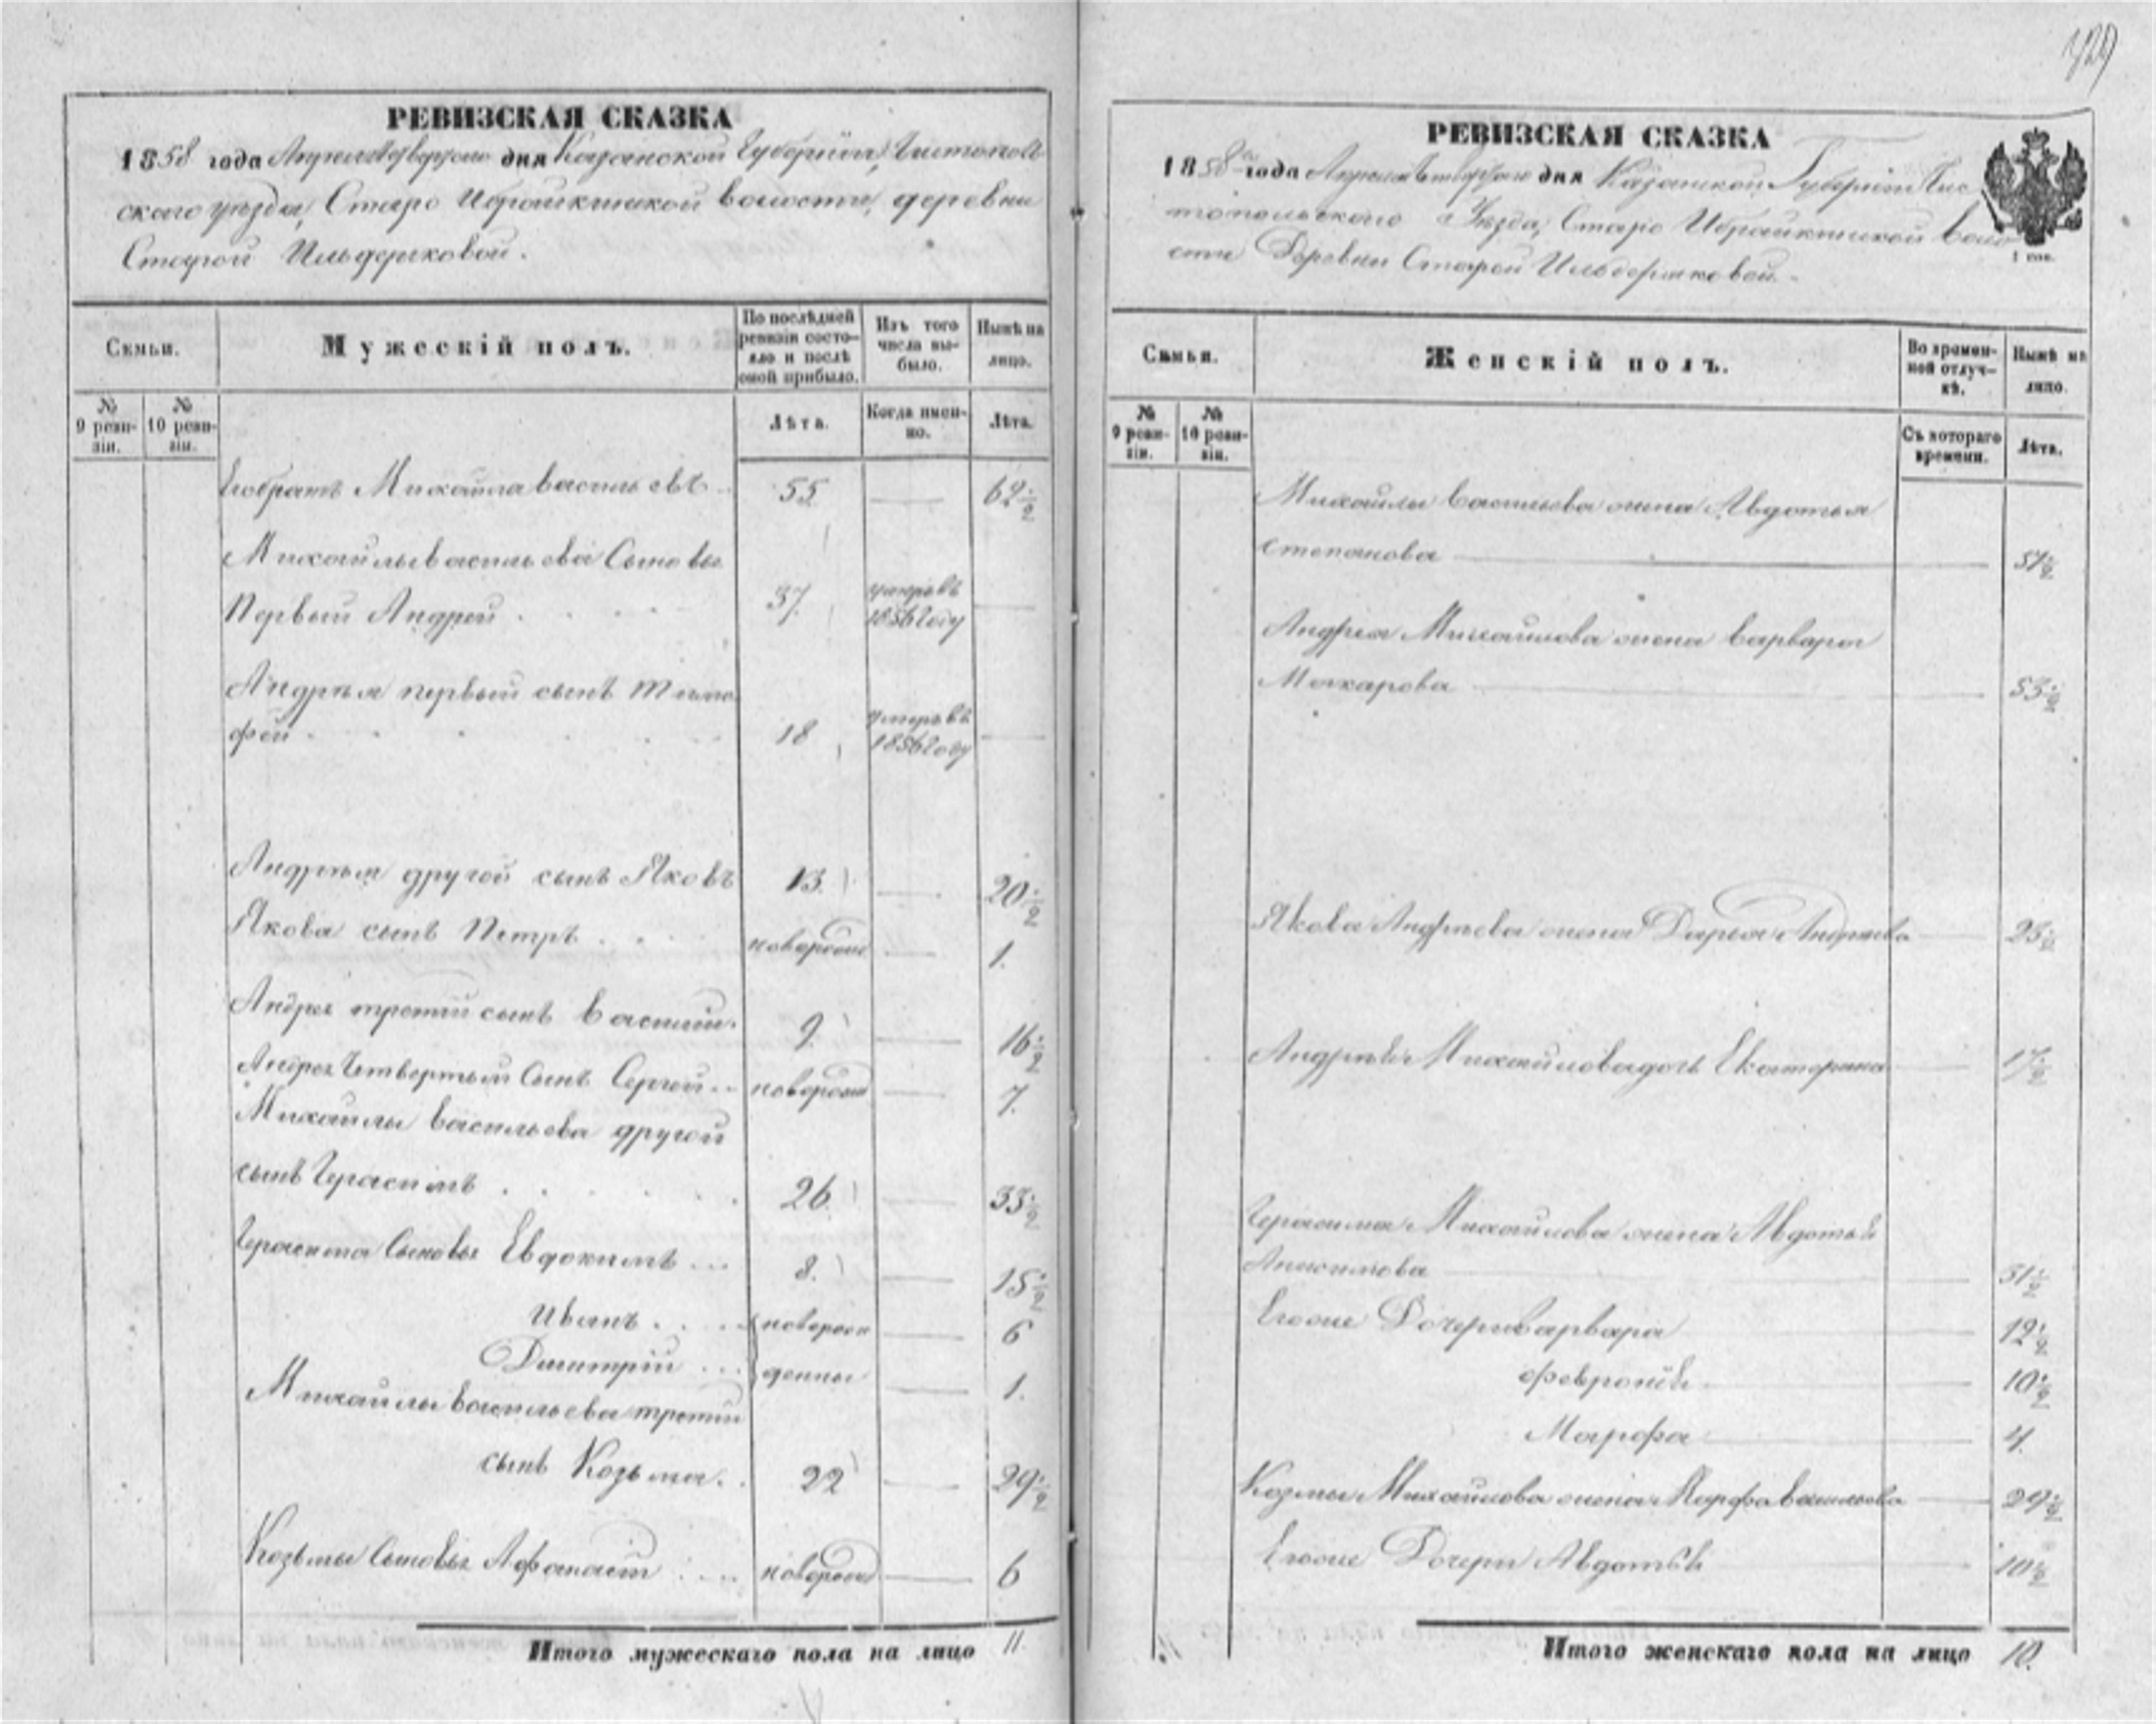 РЕВИЗСКАЯ СКАЗКА
1858 года Апреля дня Казанской Губерніи, Чистополь
скаго уезда, Старо Ибрайкинской волости, деревни
Старой Ильдеряковой.
Семьи.
Мужескій полъ.
По послѣдней ревизіи состояло и послѣ оной прибыло.
Изъ того числа выбыло.
Нынѣ на лицо.
№ 9 ревизіи.
№ 10 ревизіи.
Лѣта.
Когда именно.
Лѣта.
Егобратъ Михайла васильевъ 55 62 1/2
Михайлы васильева Сыновья
Первый Андрей 37 умеръ въ 1856 году
Андрея первый сынъ Тимо
фей 18 умеръ въ 1856 году
Андрея другой сынъ Яковъ 13 20 1/2
Якова сынъ Петръ новорожд 1
Андрея третій сынъ Василій 9 16 1/2
Андрея Четвертый Сынъ Сергей новорожд 7
Михайлы васильева другой
сынъ Герасимъ 26 33 1/2
Герасима Сыновья Евдокимъ 8 15 1/2
Иванъ новорож 6
Дмитрій денны 1
Михайлы васильева третій
сынъ Козьма 22 29 1/2
Козьмы Сыновья Афанасій новорожд 6
Итого мужескаго пола на лицо 11.
РЕВИЗСКАЯ СКАЗКА
1858 года Апреля дня Казанской Губерніи Чис
топольскаго Уезда, Старо Ибрайкинской воло
сти Деревни Старой Ильдеряковой
Семьи.
Женскій полъ.
Во временной отлучкѣ.
Нынѣ на лицо.
№ 9 ревизіи.
№ 10 ревизіи.
Съ котораго времени.
Лѣта.
Михайлы васильева жена Авдотья
степанова 51 1/2
Андрея Михайлова жена варвара
Макарова 53 1/2
Якова Андреева жена Дарья Андреева 23 1/2
Андрея Михайлова дочь Екатерина 17 1/2
Герасима Михайлова жена Авдотья
Анисимова 31 1/2
Егоже Дочери варвара 12 1/2
февронія 10 1/2
Марфа 4.
Козмы Михайлова жена Марфа васильева 29 1/2
Егоже Дочери Авдотья 10 1/2
Итого женскаго пола на лицо 10.